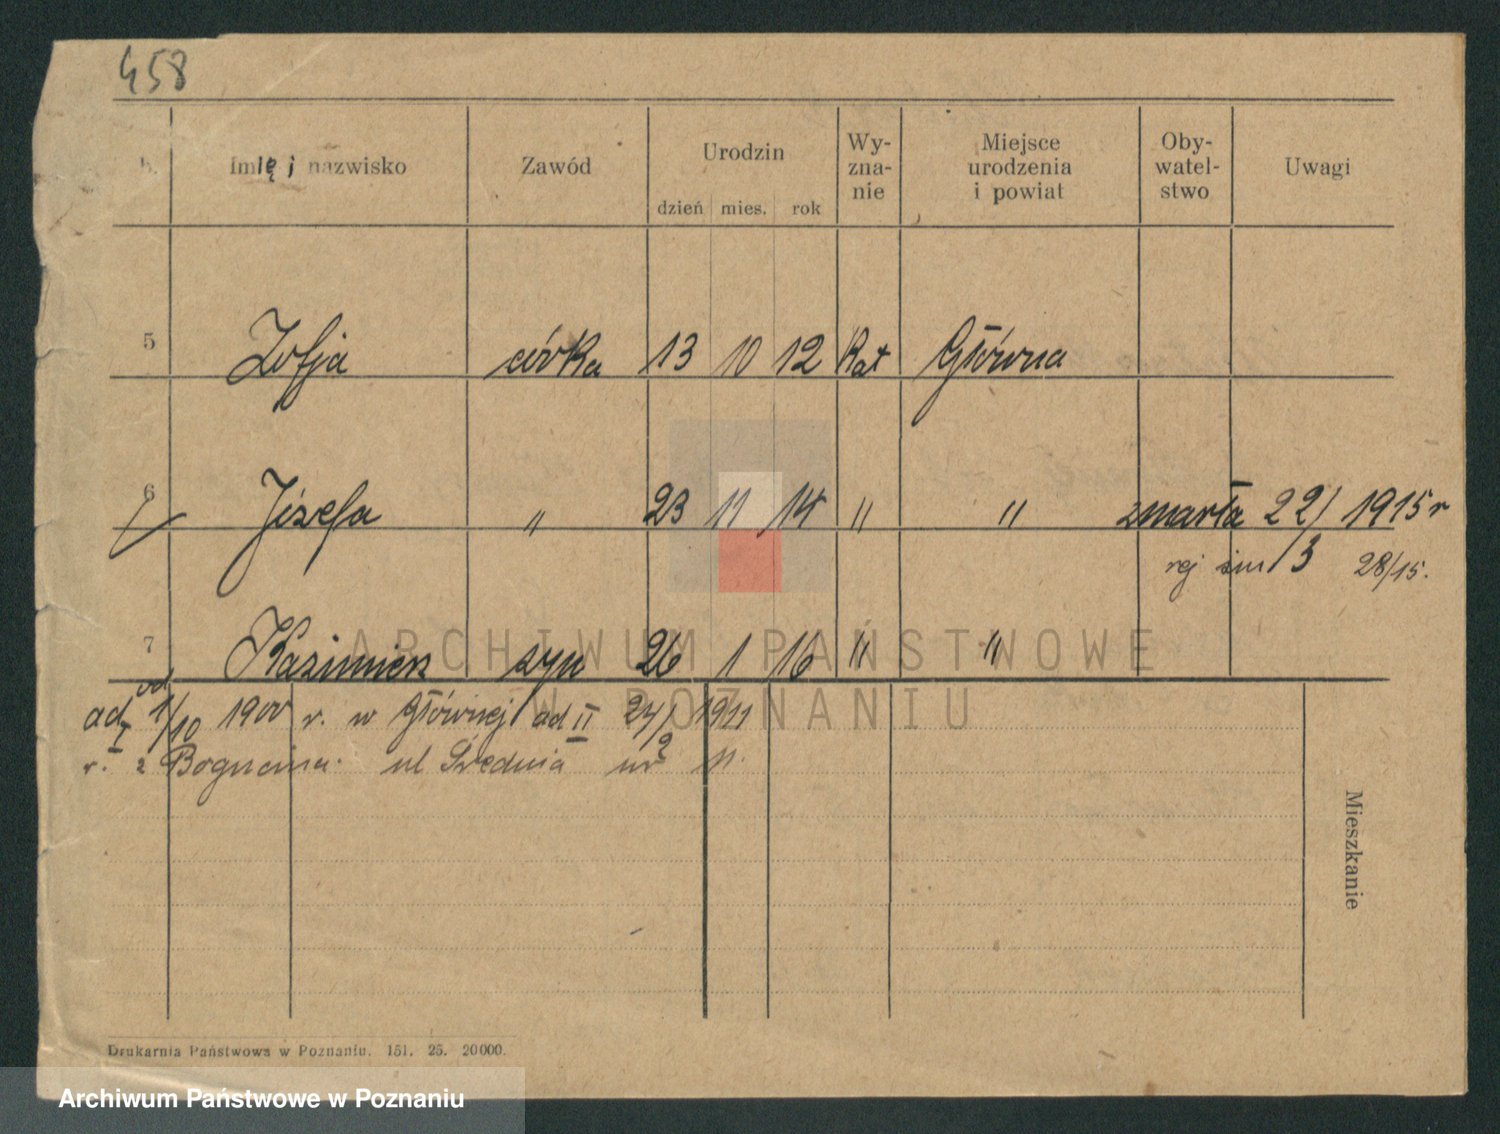 458
Imię i nazwisko Zawód Urodzin Wy- Miejsce Oby- Uwagi
zna- urodzenia watel-
dzień mies. rok nie i powiat stwo
5 Zofja córka 13 10 12 Kat Główna
6 Józefa " 23 11 14 " " zmarła 22/3 1915 r
rej 28/15.
7 Kazimierz syn 26 1 16 " "
ad I od 1/10 1900 r. w Głównej ad II 24/2 1911
r. z Bogucina. ul Średnia nr 11.
Mieszkanie
Drukarnia Państwowa w Poznaniu. 151. 25. 20000.
ARCHIWUM PAŃSTWOWE
W POZNANIU
Archiwum Państwowe w Poznaniu